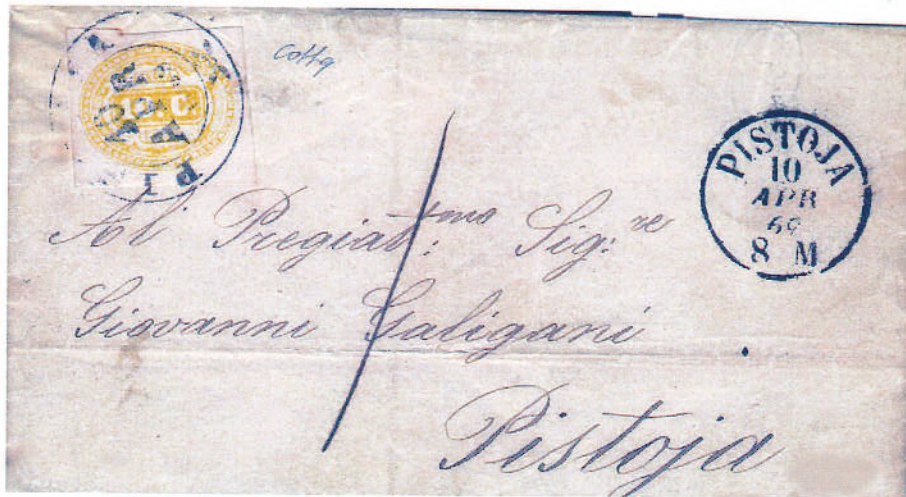 Cotta
PISTOJA
10
APR
69
8 M
Al Pregiat:mo Sig:re
Giovanni Galigani
Pistoja